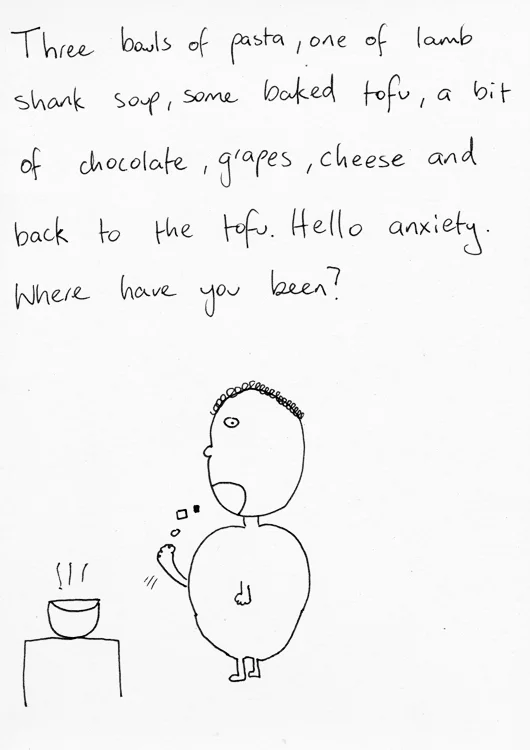 Three bowls of pasta, one of lamb
shank soup, some baked tofu, a bit
of chocolate, grapes, cheese and
back to the tofu. Hello anxiety.
Where have you been?